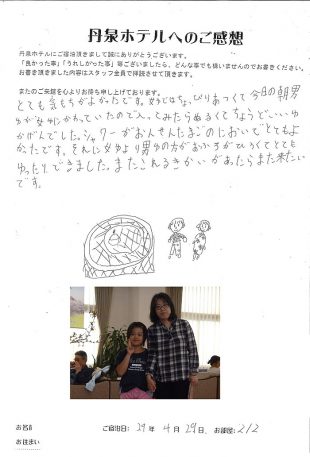 丹泉ホテルへのご感想
丹泉ホテルにご宿泊頂きまして誠にありがとうございます。
「良かった事」「うれしかった事」等ございましたら、どんな事でも構いませんのでお書きください。
お書き頂きました内容はスタッフ全員で拝読させて頂きます。
またのご来館を心よりお待ち申し上げております。
とても気もちがよかったです。女ではちょっぴりあつくて今日の朝男
ゆが女ゆにかわっていたので入ってみたらぬるくてちょうどいいゆ
かげんでした。シャワーがおんせんたまごのにおいでとてもよ
かったです。それに女ゆより男ゆの方がおふろがひろくてとても
ゆったりできました。またこれるきかいがあったらまた来たい
です。
お名前
ご宿泊日: 29年 4月 29日、お部屋: 212
お住まい